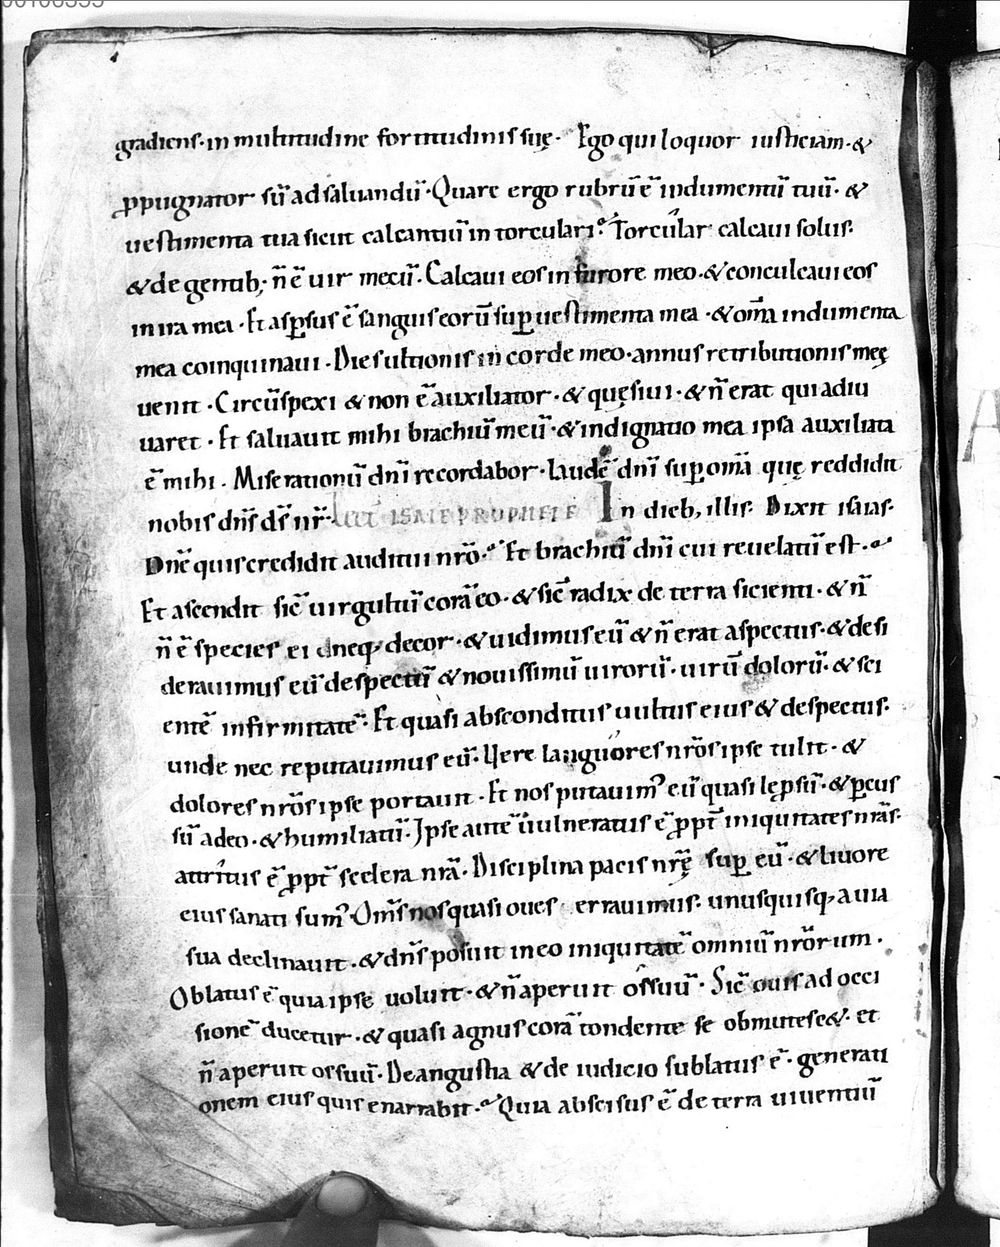 00106333
gradienſ·in multitudine fortitudiniſ ſuę· Ego qui loquor iuſticiam·&
ꝓpugnator ſū ad ſaluandū·Quare ergo rubrū ē indumentū tuū·&
ueſtimenta tua ſicut calcantiū in torculari? Torcular calcaui ſoluſ·
& de gentib; n̄ ē uir mecū·Calcaui eoſ in furore meo·& conculcaui eoſ
in ira mea·Et aſꝑſuſ ē ſanguiſ eorū ſuꝑ ueſtimenta mea·& om̄a indumenta
mea coinquinaui·Dieſ ultioniſ in corde meo·annuſ retributioniſ meę
uenit·Circūſpexi & non ē auxiliator·& quęſiui·& n̄ erat qui adiu
uaret·Et ſaluauit mihi brachiū meū·& indignatio mea ipſa auxiliata
ē mihi. Miſerationū dn̄i recordabor·laudē dn̄i ſuꝑ om̄a quę reddidit
nobiſ dn̄ſ dſ̄ nr̄· Lect ISAIE PROPHETE In dieb; illiſ· Dixit iſaiaſ·
Dn̄e quiſ credidit auditui nr̄o? Et brachiū dn̄i cui reuelatū eſt?
Et aſcendit ſic̄ uirgultū corā eo·& ſic̄ radix de terra ſicienti·& n̄
n̄ ē ſpecieſ ei neq; decor·& uidimuſ eū & n̄ erat aſpectuſ·& deſi
derauimuſ eū deſpectū & nouiſſimū uirorū·uirū dolorū·& ſci
entē infirmitatē· Et quaſi abſconditus uultuſ eiuſ & deſpectuſ·
unde nec reputauimuſ eū· Uere languoreſ nr̄oſ ipſe tulit·&
doloreſ nr̄oſ ipſe portauit·Et noſ putauim᾿ eū quaſi lepſū·& ꝑcuſ
ſū a deo·& humiliatū·Ipſe autē uulneratuſ ē ꝓpt̄ iniquitateſ nr̄aſ·
attrituſ ē ꝓpt̄ ſcelera nr̄a·Diſciplina paciſ nr̄ę ſuꝑ eū·& liuore
eiuſ ſanati ſum᾿·Om̄ſ noſ quaſi oueſ errauimuſ·unuſquiſq; a uia
ſua declinauit·& dn̄ſ poſuit in eo iniquitatē omniū nr̄orum·
Oblatuſ ē quia ipſe uoluit·& n̄ aperuit oſ ſuū·Sic̄ ouiſ ad occi
ſionē ducetur·& quaſi agnuſ corā tondente ſe obmuteſc&· et
n̄ aperuit oſ ſuū·De anguſtia & de iudicio ſublatuſ ē·generati
onem eiuſ quiſ enarrabit? Quia abſciſuſ ē de terra uiuentiū